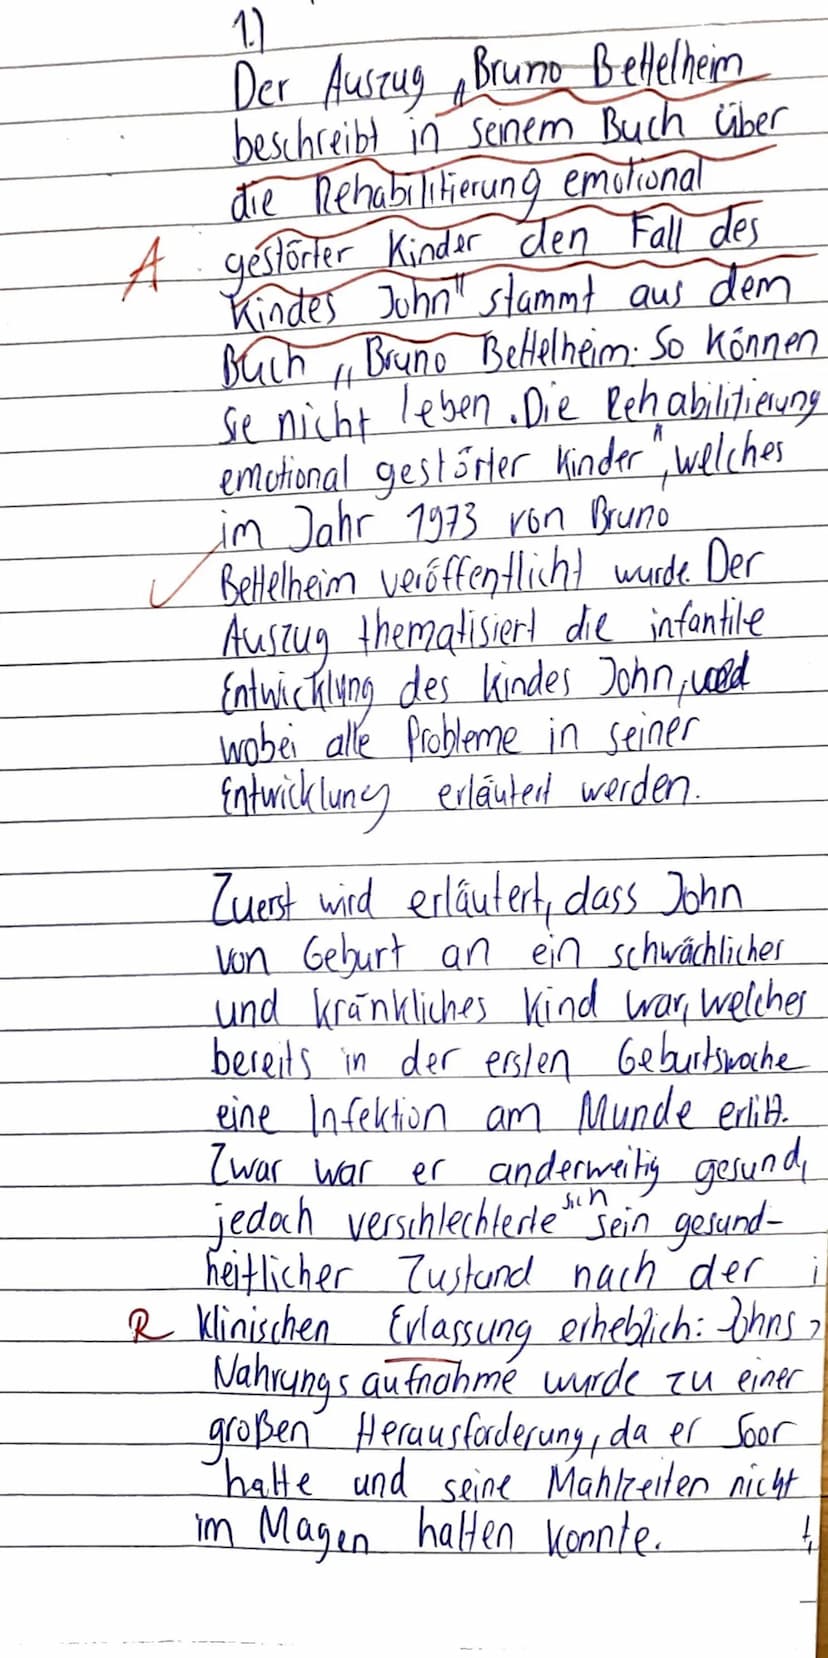 1.)
Der Auszug „Bruno Bettelheim
beschreibt in seinem Buch über
die Rehabilitierung emotional
A gestörter Kinder den Fall des
Kindes John" stammt aus dem
Buch „Bruno Bettelheim. So können
sie nicht leben. Die Rehabilitierung
emotional gestörter Kinder", welches
im Jahr 1973 von Bruno
Bettelheim veröffentlicht wurde. Der
Auszug thematisiert die infantile
Entwicklung des Kindes John,
wobei alle Probleme in seiner
Entwicklung erläutert werden.
Zuerst wird erläutert, dass John
von Geburt an ein schwächlicher
und kränkliches Kind war, welches
bereits in der ersten Geburtswoche
eine Infektion am Munde erlitt.
Zwar war er anderweitig gesund,
jedoch verschlechterte sich sein gesund-
heitlicher Zustand nach der
R klinischen Erlassung erheblich: Johns
Nahrungsaufnahme wurde zu einer
großen Herausforderung, da er Soor
hatte und seine Mahlzeiten nicht
im Magen halten konnte.